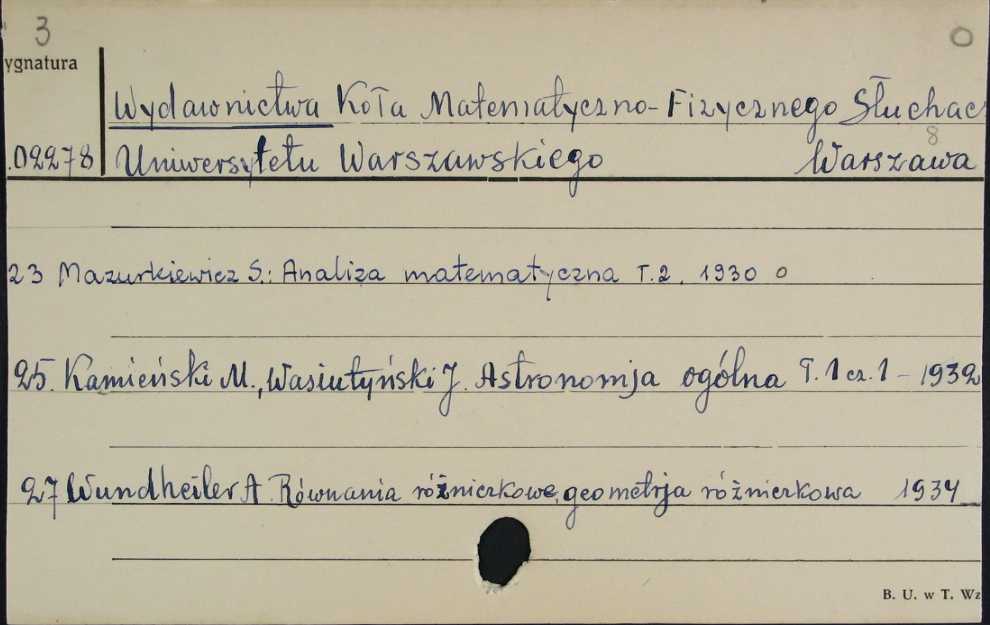 3 O
ygnatura
Wydawnictwa Koła Matematyczno-Fizycznego Słuchac
8
.02278 Uniwersytetu Warszawskiego Warszawa
23 Mazurkiewicz S.: Analiza matematyczna T.2. 1930 o
25. Kamieński M., Wasiutyński J. Astronomja ogólna T. 1 cz. 1 - 1932
27 Wundheiler A. Równania różniczkowe, geometrja różniczkowa 1934
B. U. w T. Wz